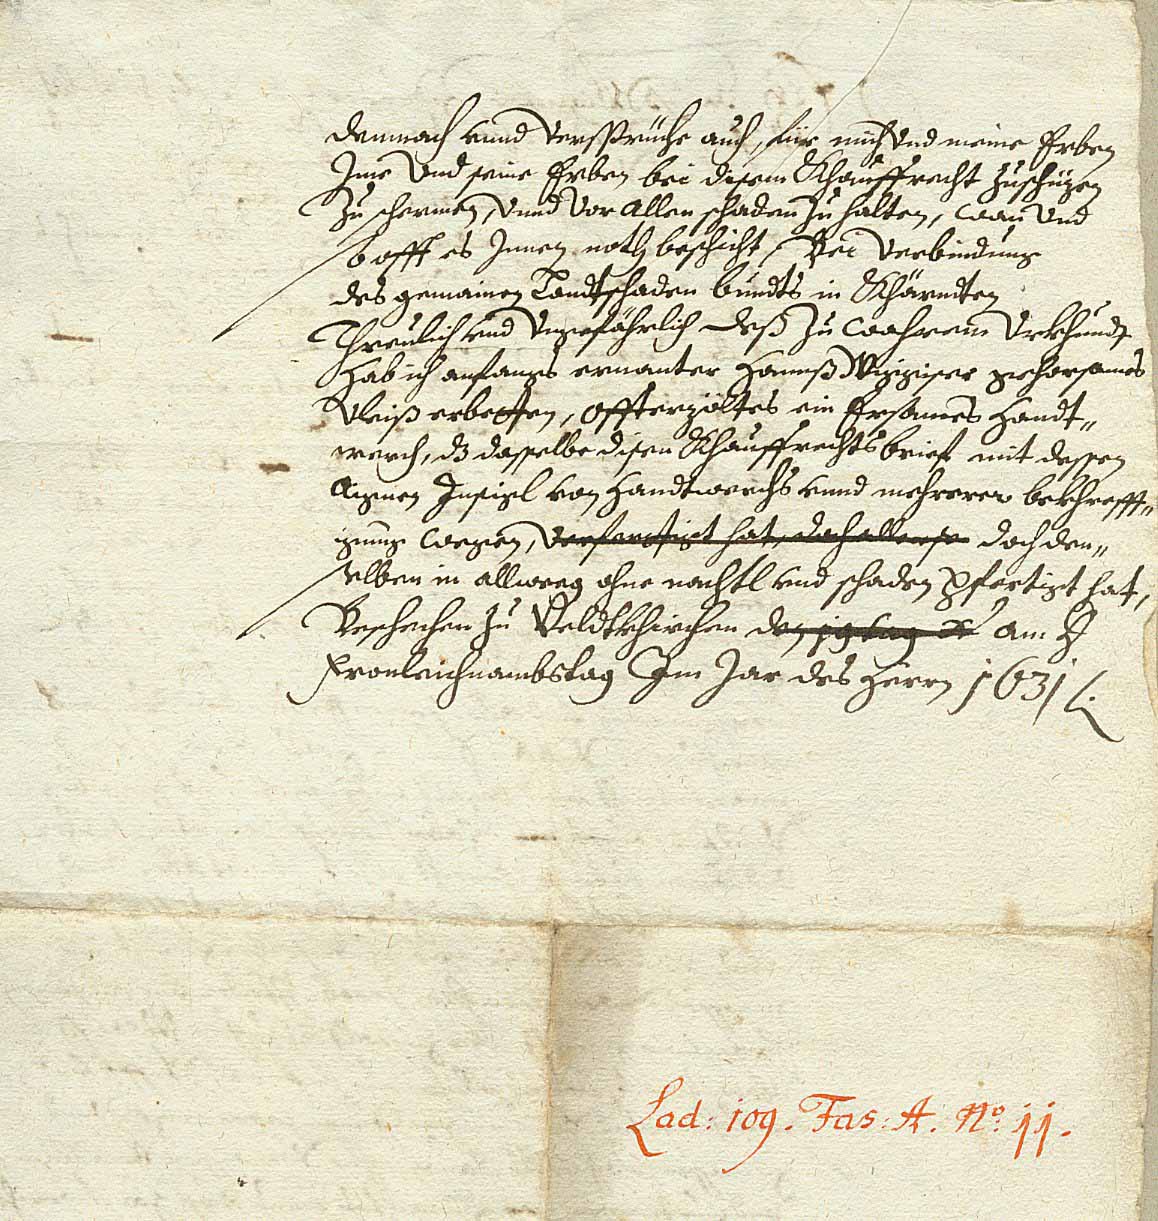 demnach vnnd versprüche auch, für mich vnd meine Erben
Jme vnd seine Erben bei disem Khauffrecht zuschüzen
zu schermen, vnnd vor allen schaden zu halten, wan vnd
so offt es Jnnen noth beschicht, Bei verbindung
des gemainen Landtschaden bundts in Khärndten
Threulich vnd vngefährlich deß zu wahrem Vrkhundt
hab ich anfangs ernanter Hannß gehorsames
vleiß erbetten, offterzöltes ein Ersames Handt„
werch, dz dasselbe disen Khauffrechtsbrieff mit dessen
aignen Insigl von Handtwerchs vnnd mehrerer bekhrefft„
igung wegen, verfertigt hat, doch doch den„
selben in allweeg ohne nachtl vnd schaden gfertigt hat,
Beschechen zu Veldtkhirchen den 19 tag am
Fronleichnambstag Im Jar des Herrn 1631
Lad: 109. Fas: A. No. 11.